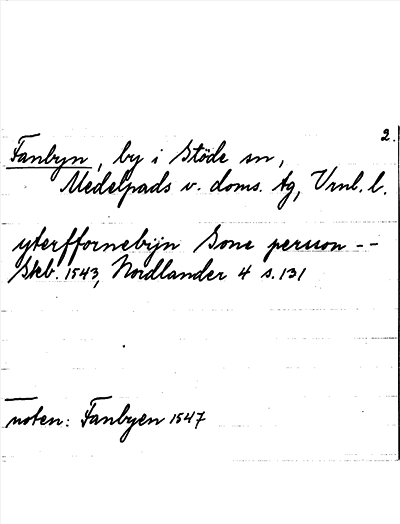 2.
Fanbyn, by i Stöde sn,
Medelpads v. doms. tg, Vrnl. l.
ytterffornebijn Jone persson --
Skb. 1543, Nordlander 4 s. 131
noten: Fanbyen 1547